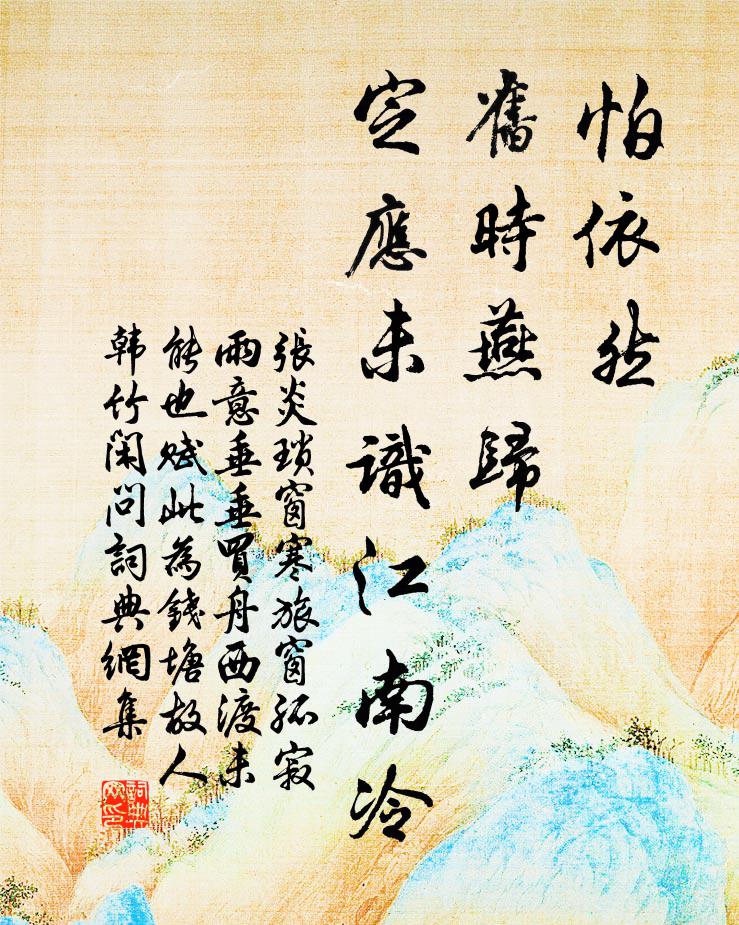 怕依然
舊時燕歸
定應未識江南冷
張炎瑣窗寒旅窗孤寂
雨意垂垂買舟西渡未
能也賦此為錢塘故人
韩竹閑问詞典網集